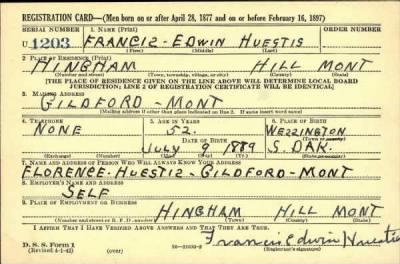 REGISTRATION CARD—(Men born on or after April 28, 1877 and on or before February 16, 1897)
SERIAL NUMBER 1. NAME (Print) ORDER NUMBER
U 1203 FRANCIZ - EDWIN HUESTIS
(First) (Middle) (Last)
2. PLACE OF RESIDENCE (Print)
HINGHAM HILL MONT
(Number and street) (Town, township, village, or city) (County) (State)
[THE PLACE OF RESIDENCE GIVEN ON THE LINE ABOVE WILL DETERMINE LOCAL BOARD
JURISDICTION; LINE 2 OF REGISTRATION CERTIFICATE WILL BE IDENTICAL]
3. MAILING ADDRESS
GILDFORD - MONT
[Mailing address if other than place indicated on line 2. If same insert word same]
4. TELEPHONE 5. AGE IN YEARS 6. PLACE OF BIRTH
NONE 52. WEZZINGTON
DATE OF BIRTH (Town or county)
JULY 9 1889 S. DAK.
(Exchange) (Number) (Mo.) (Day) (Yr.) (State or country)
7. NAME AND ADDRESS OF PERSON WHO WILL ALWAYS KNOW YOUR ADDRESS
FLORENCE - HUESTIZ - GILDFORD - MONT
8. EMPLOYER'S NAME AND ADDRESS
SELF
9. PLACE OF EMPLOYMENT OR BUSINESS
HINGHAM HILL MONT
(Number and street or R. F. D. number) (Town) (County) (State)
I AFFIRM THAT I HAVE VERIFIED ABOVE ANSWERS AND THAT THEY ARE TRUE.
D. S. S. Form 1
(Revised 4-1-42) (over) Francis Edwin Huestis
(Registrant's signature)